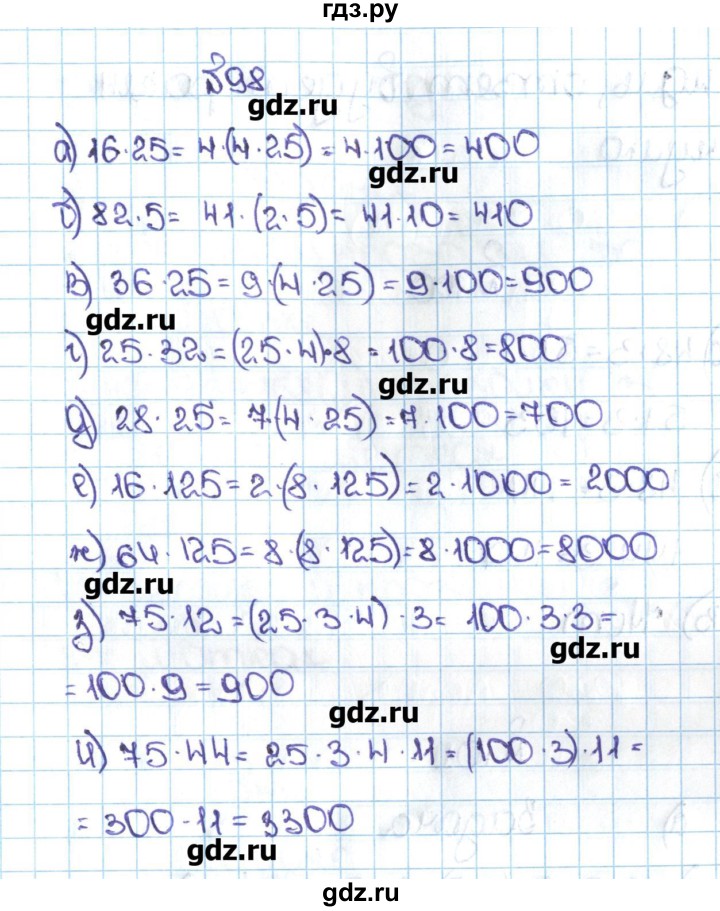 гдз.ру
№98
gdz.ru
а) 16·25= 4·(4·25) = 4·100 = 400
gdz.ru
б) 82·5= 41·(2·5)= 41·10= 410
в) 36·25= 9·(4·25)=9·100=900
gdz.ru
г) 25·32=(25·4)·8 =100·8=800
gdz.ru
д) 28·25= 7·(4·25)=7·100=700
е) 16·125=2·(8·125)=2·1000= 2000
ж) 64·125=8·(8·125)=8·1000=8000
gdz.ru
з) 75·12=(25·3·4)·3= 100·3·3=
gdz.ru
=100·9=900
gdz.ru
и) 75·44= 25·3·4·11=(100·3)·11=
= 300·11= 3300
gdz.ru
gdz.ru